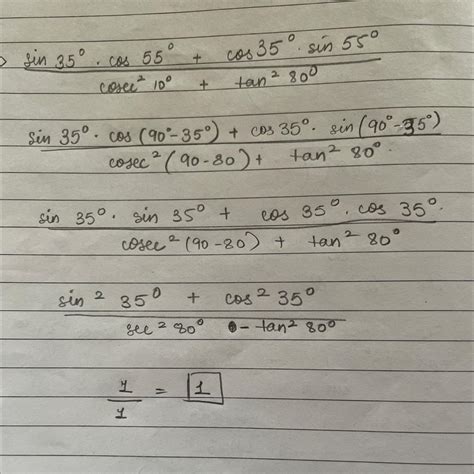 sin 35° · cos 55° + cos 35° · sin 55°
cosec² 10° + tan² 80°
sin 35° · cos (90°-35°) + cos 35° · sin (90°-35°)
cosec² (90-80) + tan² 80°
sin 35° · sin 35° + cos 35° · cos 35°.
cosec² (90-80) + tan² 80°
sin² 35° + cos² 35°
sec² 80° - tan² 80°
1
1
= 1